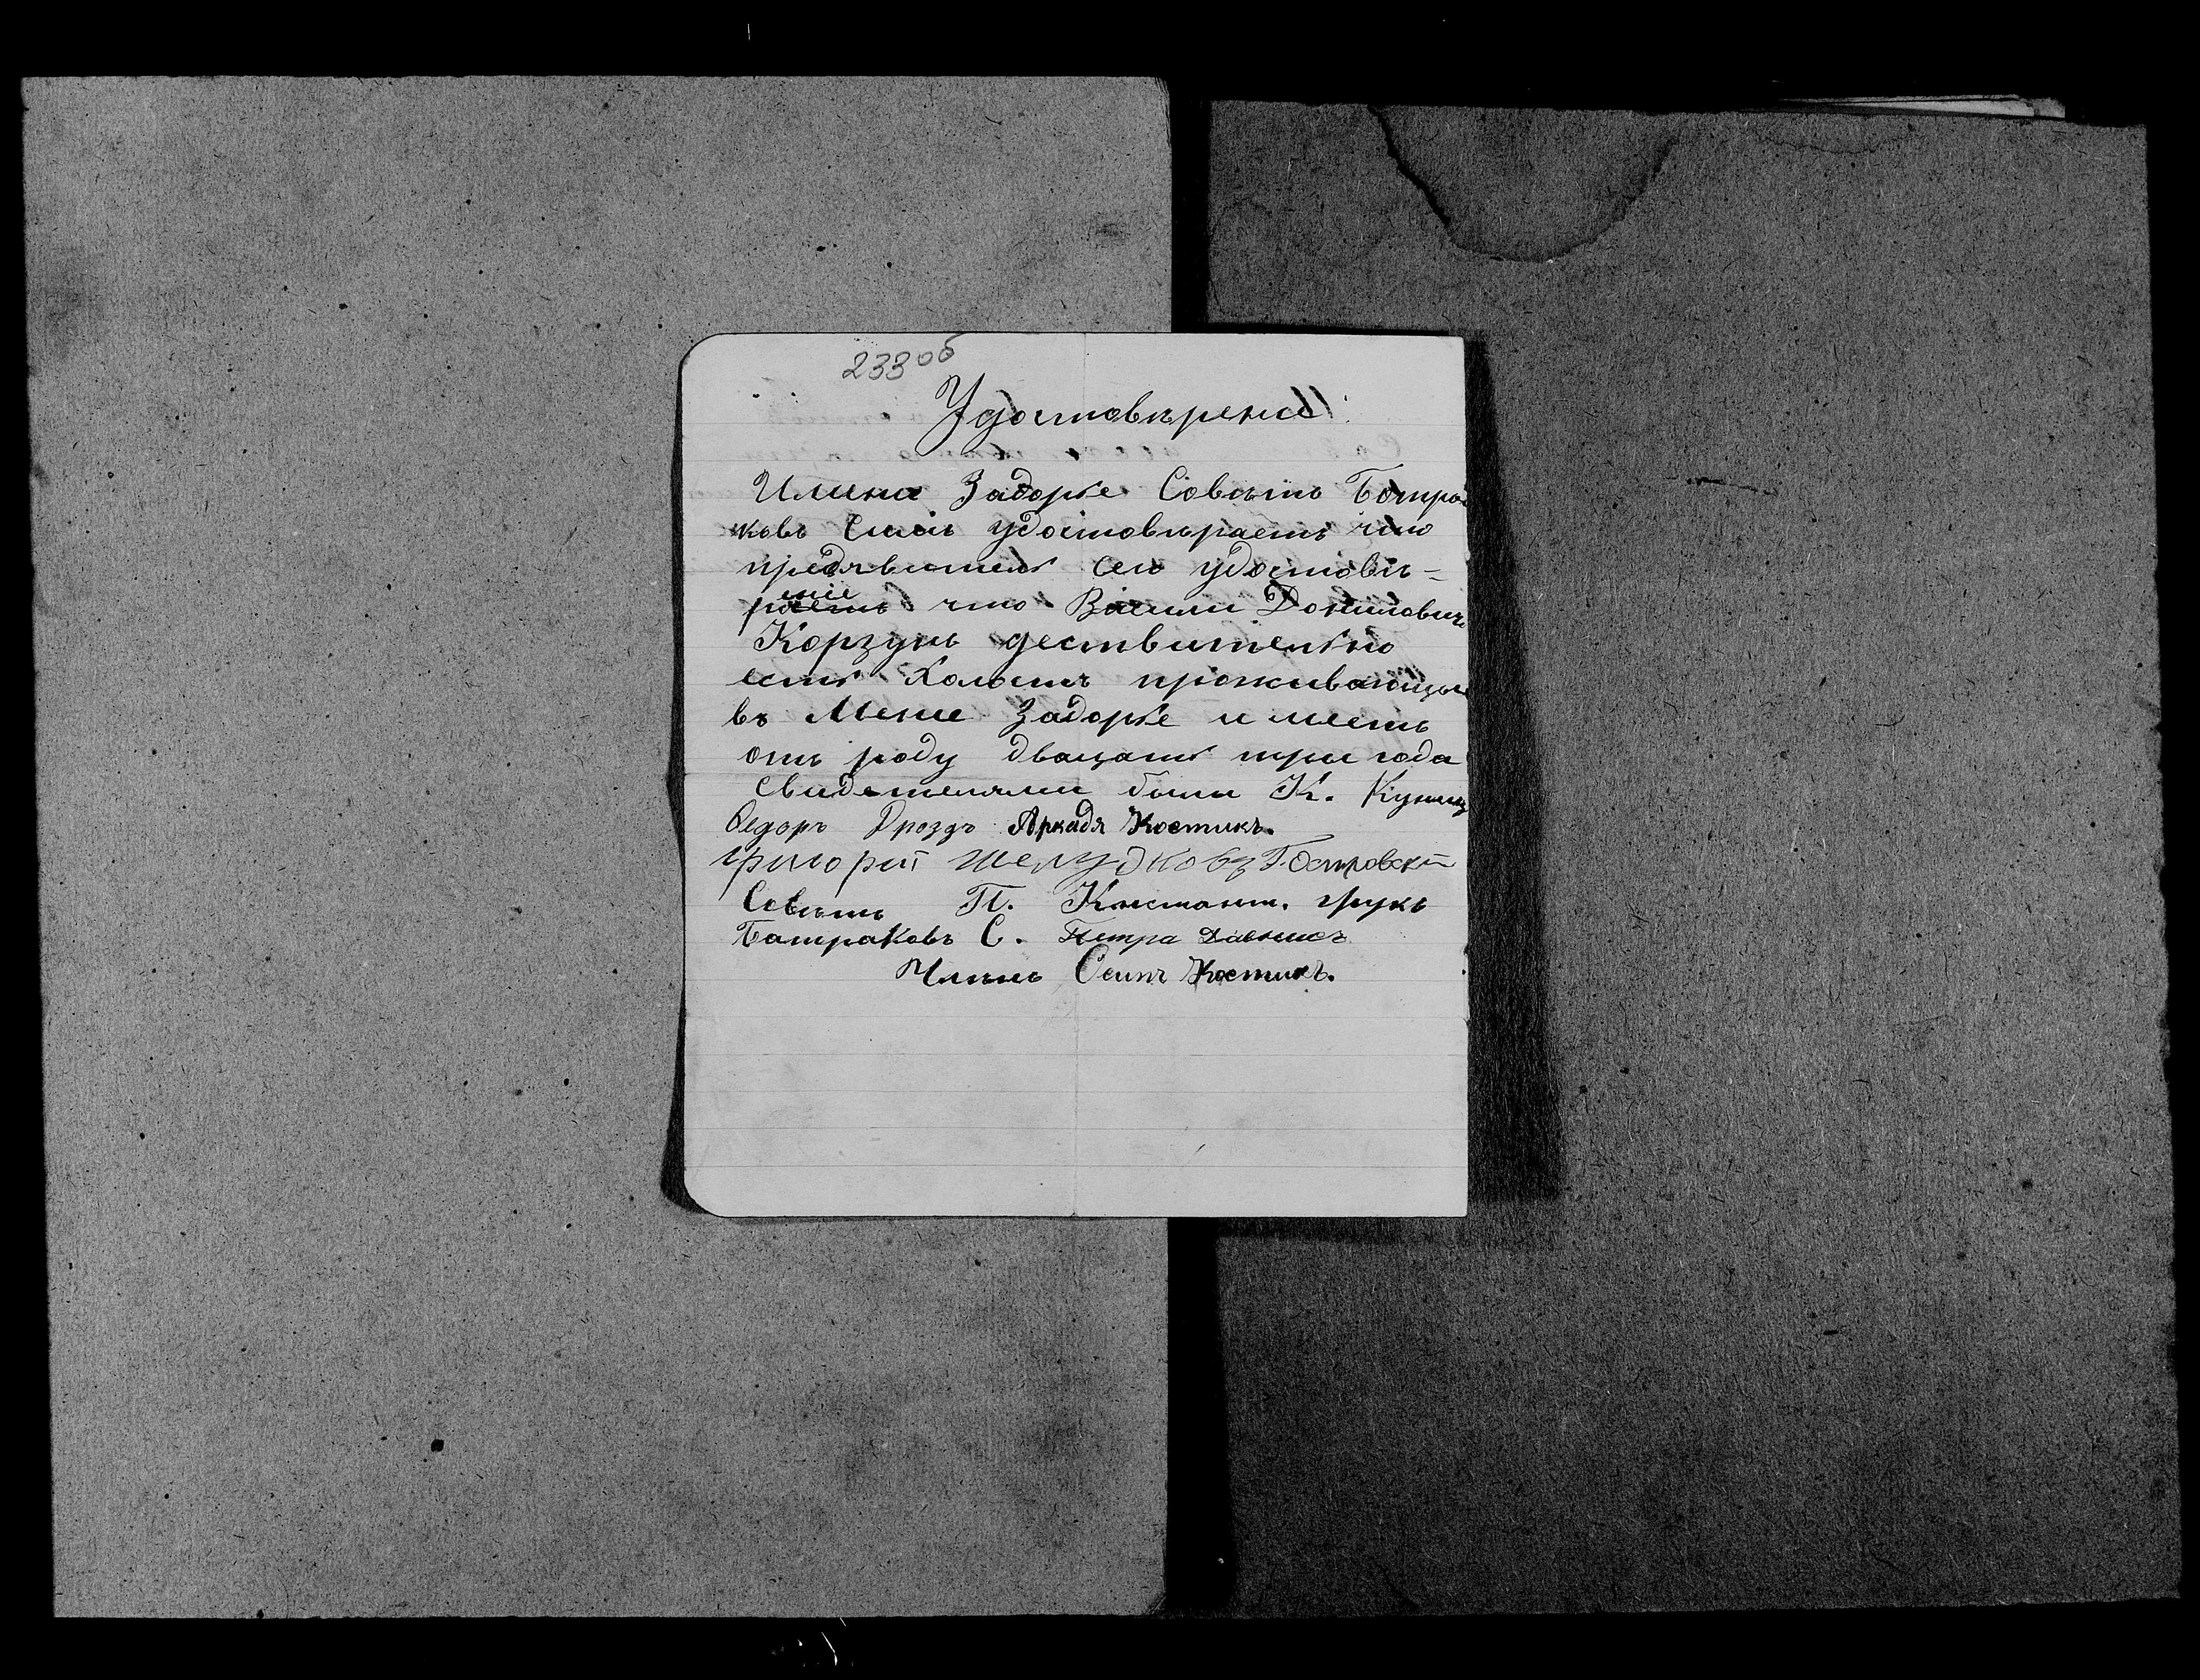 233об
Удостовѣрение
Имени Задорье Совѣтъ Ботра
ковъ Симъ удостовѣраетъ что
предявитель сего удостовѣ-
рение что Васили Донилович
Корзунъ дествительно
есть Холостъ проживающи
въ Мение Задорье имеетъ
отъ роду двацать три года
Свидетелями были К. Куниц
Ѳедоръ Дроздъ Аркадя Костикъ.
Григорий Шелудковъ Г. Островский
Совѣтъ П. Констант. Грукъ
Батраковъ С. Петра
Члѣнъ Осипъ Костикъ.